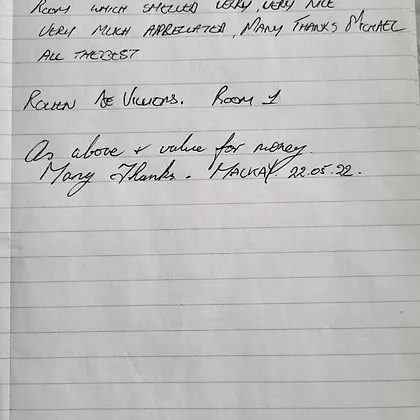 ROOM WHICH SMELLED VERY, VERY NICE
VERY MUCH APPRECIATED, MANY THANKS MICHAEL
ALL THE BEST
DE VILLIERS. ROOM 1
As above & value for money.
Many Thanks. MACKAY 22.05.22.